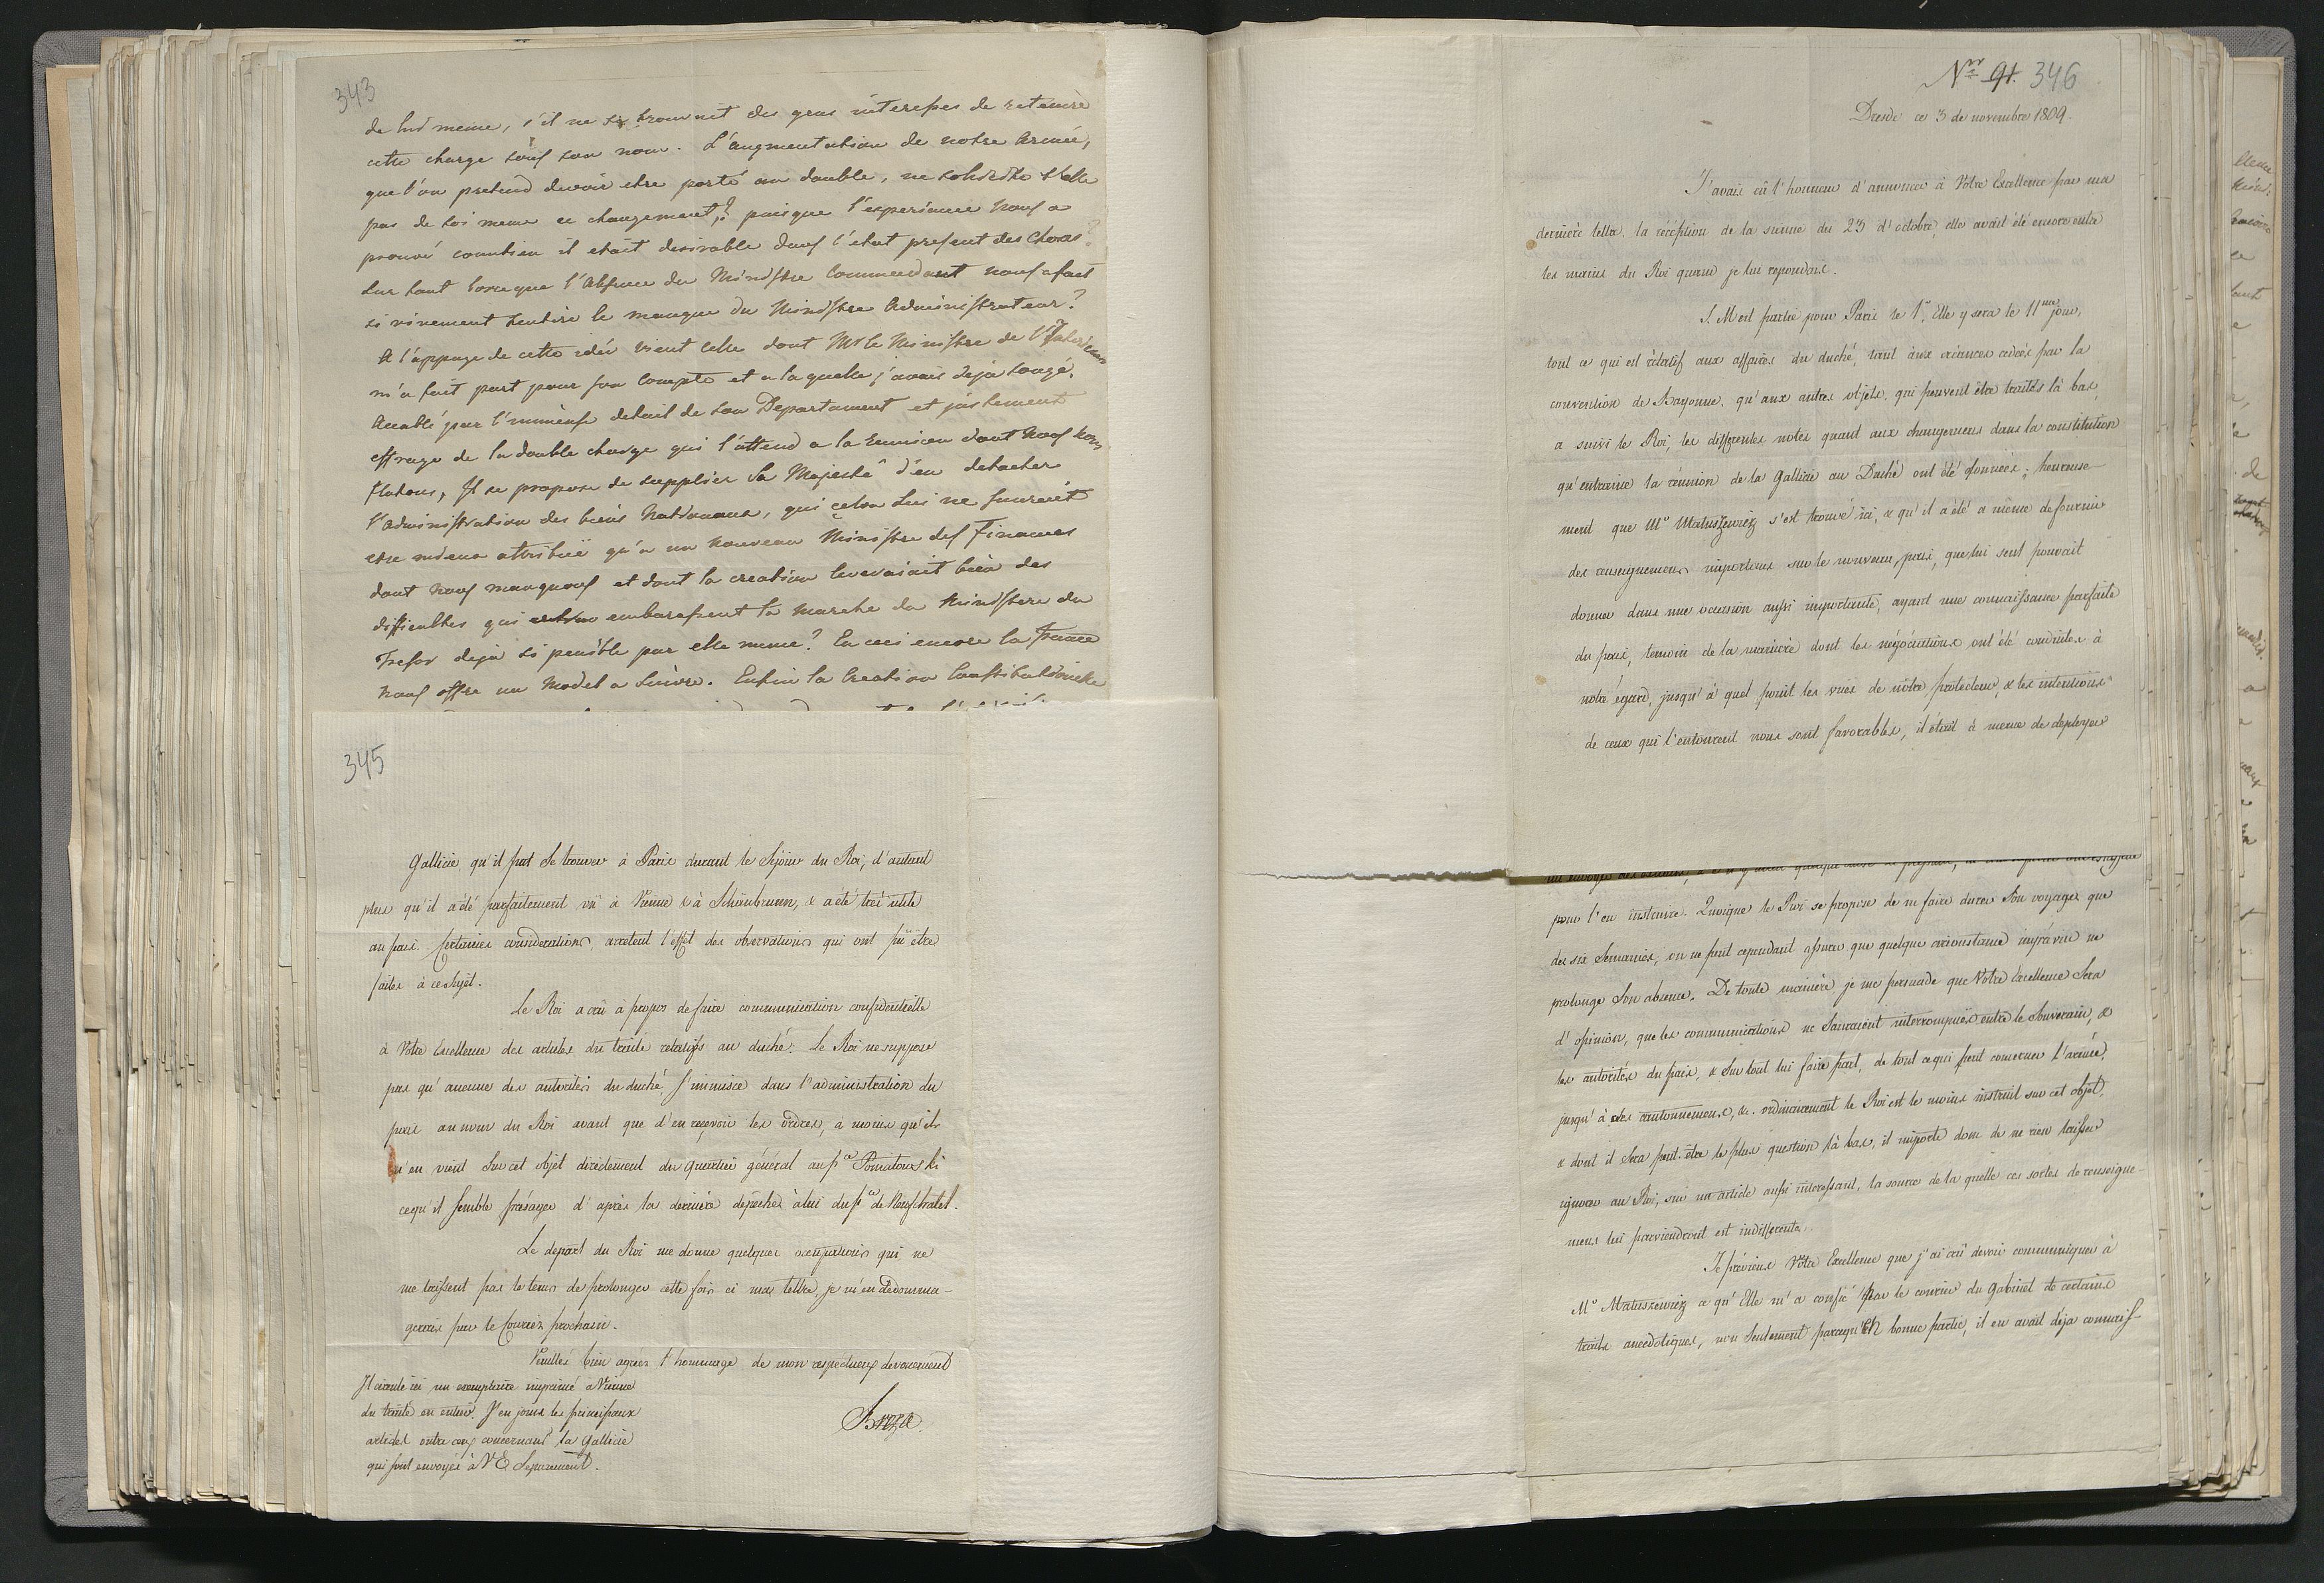 343
de lui meme, s'il ne se trouvait des gens interessés de retenire
cette charge souf son nom. L'augmentation de notre Armée,
que l'on pretend devoir etre porté au double, ne t'elle
pas de soi meme ce changement? puisque l'experience nous a
prouvé combien il etait desirable dans l'etat present des choses?
sur tout lorseque l'Absence du Ministre Commendant nous a fait
si vivement sentire le manque du Ministre Administrateur?
A l'appuye de cette idée vient celle dont Mr le Ministre de l'Interieur
m'a fait part pour son compte et a laquelle j'avais deja songé.
Accablé par l'immense detail de son Departament et justement
effraye de la double charge qui l'attend a la Reunion dont nous nous
flatons, Il se propose de supplier Sa Majesté d'en detacher
l'Administration des biens Nationaux, qui selon Lui ne sauroit
etre mieux attribué qu'a un nouveau Ministre des Finances
dont nous manquons et dont la creation leveroit bien des
difficultes qui embarassent la marche du Ministere du
Tresor deja si penible par elle meme? En ceci encore la France
nous offre un Model a suivre. Enfin la Creation Constitutionelle
345
Gallicie, qu'il put se trouver à Paris durant le Séjour du Roi, d'autant
plus qu'il a été parfaitement vû à Vienne & à Schönbrunn, & a été très utile
au païs. Certaines considerations, arretent l'effet des observations qui ont pû être
faites à ce sujet.
Le Roi a crû à propos de faire communication confidentielle
à Votre Excellence des articles du traité relatifs au duché. Le Roi ne suppose
pas qu'aucune des autorités du duché, s'immisce dans l'administration du
païs au nom du Roi avant que d'en reçevoir les ordres, à moins qu'ils
n'en vient sur cet objet directement du quartier général au pce Poniatowski
cequ'il semble présager d'après la dernière depêche à lui du pce de Neufchatel.
Le depart du Roi me donne quelques occupations qui ne
me laissent pas le tems de prolonger cette fois ci ma lettre, je m'en dédomma-
gerais par le Courier prochain.
Veuillés bien agréer l'hommage de mon respectueux devouement
Breza
Il circule ici un exemplaire imprimé a Vienne
du traité en entier. J'en joins les principaux
articles outre ceux concernant la Gallicie
qui sont envoyés à V E Separement.
Nro 91. 346
Dresde ce 3 de novembre 1809.
J'avais eû l'honneur d'annoncer à Votre Excellence par ma
dernière lettre, la récéption de la sienne du 23 d'octobre, elle avait été encore entre
les mains du Roi quand je lui repondais.
S. M est partie pour Paris le 1r, Elle y sera le 11me jour,
tout ce qui est rélatif aux affaires du duché, tant aux créances cedées par la
convention de Bayonne, qu'aux autres objets, qui peuvent être traités là bas,
a suivi le Roi, les differentes notes quant aux changemens dans la constitution
qu'entraine la réunion de la Gallicie au Duché ont été données; heureuse-
ment que Mr Matuszewicz s'est trouvé ici, & qu'il a été a même de fournir
des renseignemens importans sur le nouveau païs, que lui seul pouvait
donner dans une occasion aussi importante, ayant une connaissance parfaite
du païs, temoin de la manière dont les négociations ont été conduites à
notre égard, jusqu'à quel point les vües de nôtre protecteur, & les intentions
de ceux qui l'entourent nous sont favorables, il était à meme de deployer
pour l'en instruire. Quoique le Roi se propose de ne faire durer Son voyage que
des six Semaines, on ne peut cependant assurer que quelque circonstance imprévue ne
prolonge Son absence. De toute manière je me persuade que Votre Excellence Sera
d'opinion, que les communications ne Sauraient interrompuës entre le Souverain, &
les autorités du païs, & sur tout lui faire part, de tout cequi peut concerner l'armée,
jusqu'à des cantonnemens, &. ordinairement le Roi est le moins instruit sur cet objet,
& dont il Sera peut-être le plus question là bas, il importe donc de ne rien laisser
ignorer au Roi, sur un article aussi intéressant, la source de la quelle ces sortes de renseigne-
mens lui parviendront est indifferente.
Je préviens Votre Excellence que j'ai crû devoir communiquer à
Mr Matuszewicz ce qu'Elle m'a confié par le courier du Gabinet de certains
traits anecdotiques, non Seulement parcequ'En bonne partie, il en avait déja connais-